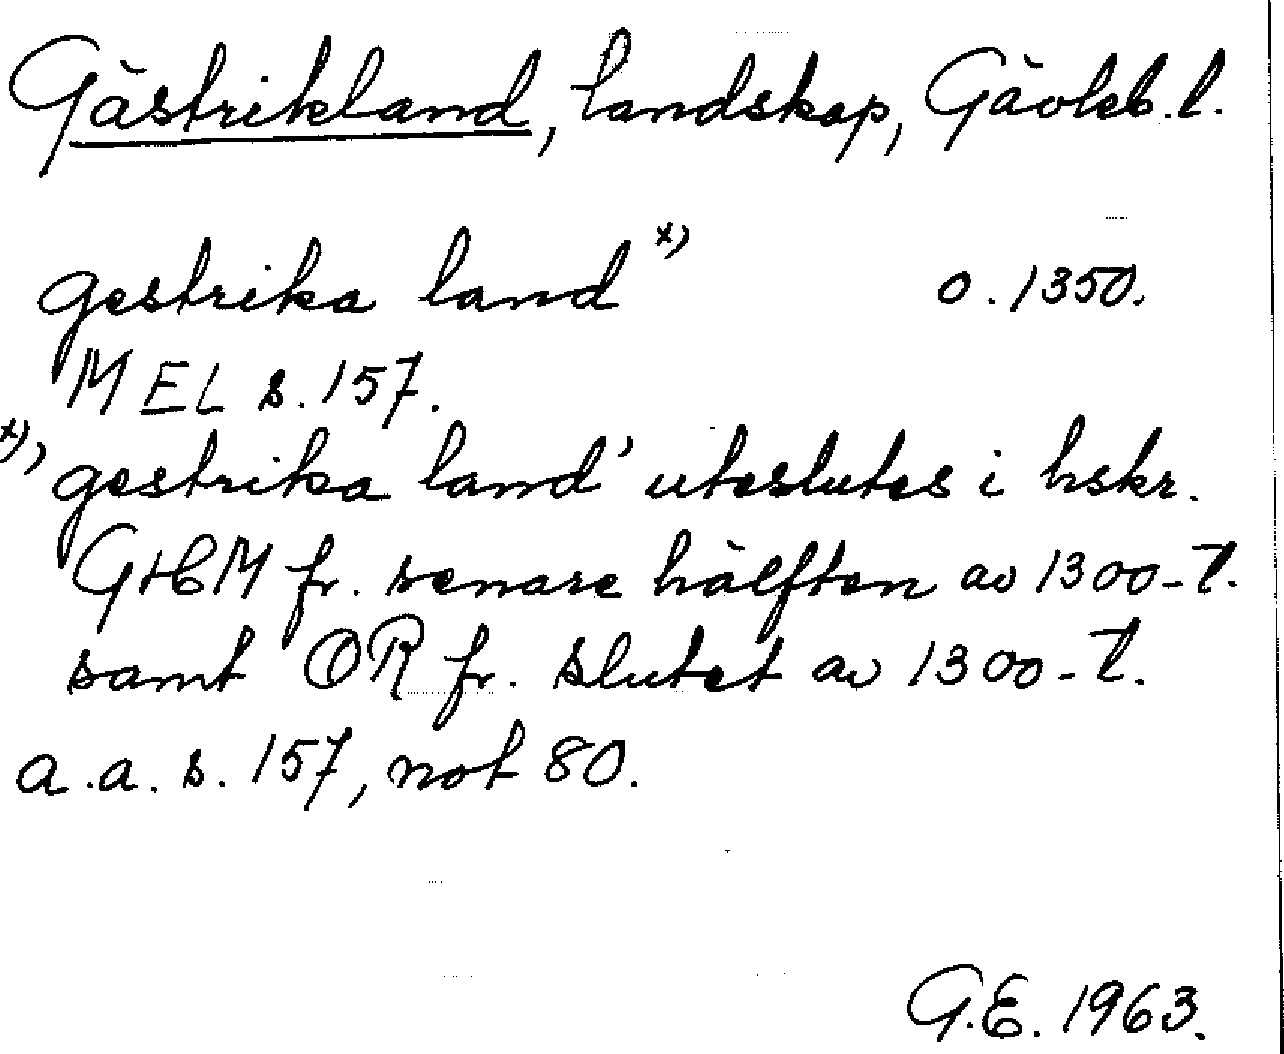 Gästrikland, landskap, Gävleb. l.
gestrika land x) o. 1350.
MEL s. 157.
x) 'gestrika land' uteslutes i hskr.
GHCM fr. senare hälften av 1300-t.
samt OR fr. slutet av 1300-t.
a.a. s. 157, not 80.
G.E. 1963.